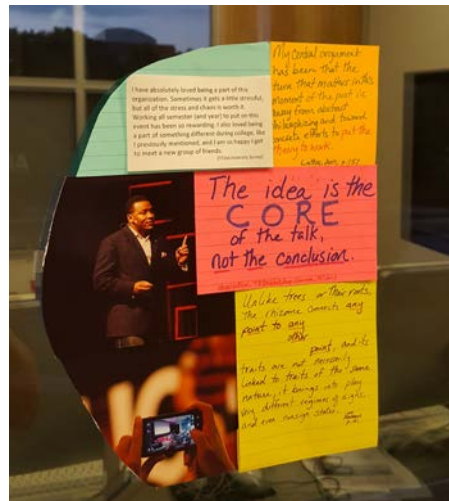 I have absolutely loved being a part of this
organization. Sometimes it gets a little stressful,
but all of the stress and chaos is worth it.
Working all semester (and year) to put on this
event has been so rewarding. I also loved being
a part of something different during college, like
I previously mentioned, and I am so happy I got
to meet a new group of friends.
My central argument
has been that the
turn that matters in this
moment of the post is
away from abstract
and toward
concrete efforts to put the
theory to work.
The idea is the
CORE
of the talk,
not the conclusion.
Unlike trees or their roots,
the rhizome connects any
point to any
other
point, and its
traits are not necessarily
linked to traits of the same
nature; it brings into play
very different regimes of signs,
and even nonsign states.